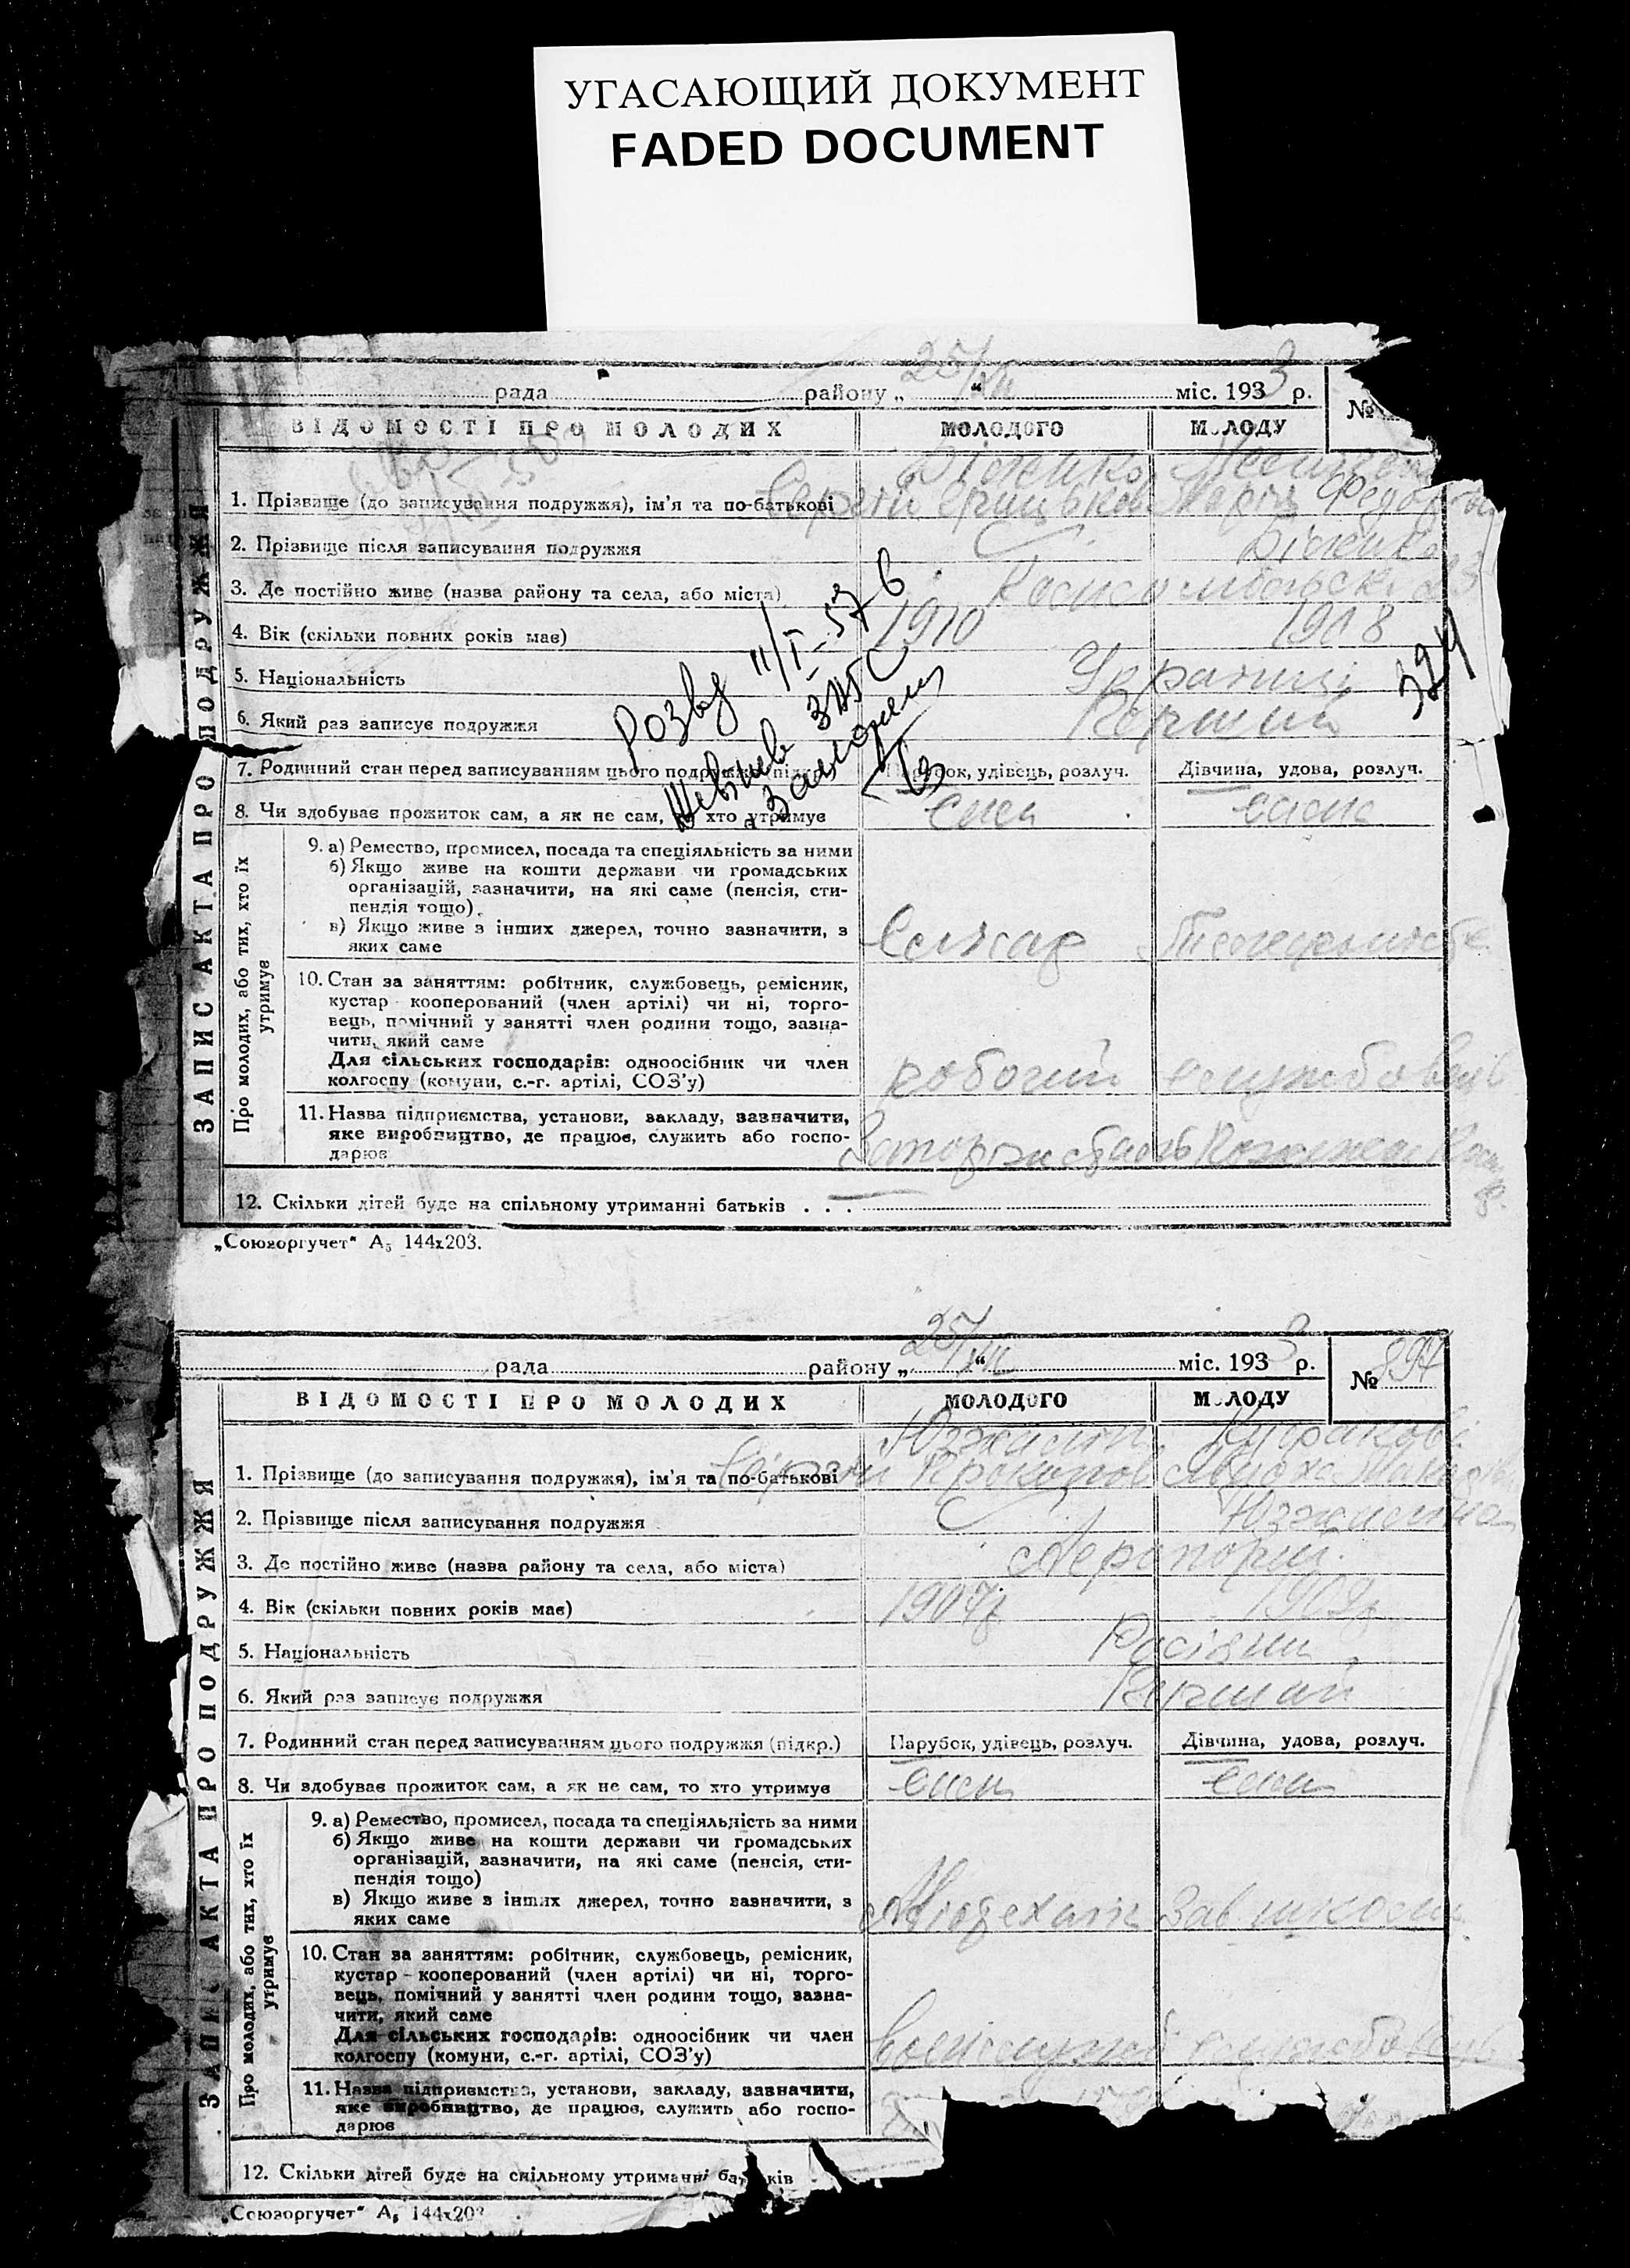 УГАСАЮЩИЙ ДОКУМЕНТ
FADED DOCUMENT
рада району „25/XII“ міс. 1933 р. №
ВІДОМОСТІ ПРО МОЛОДИХ МОЛОДОГО МОЛОДУ
ЗАПИС АКТА ПРО ПОДРУЖЖЯ
1. Прізвище (до записування подружжя), ім'я та по-батькові Сергій Грицьков Марія Федор
2. Прізвище після записування подружжя
3. Де постійно живе (назва району та села, або міста)
4. Вік (скільки повних років має) 1910 1908
5. Національність Українці
6. Який раз записує подружжя Перший
Розвод 11/I-57 в
ЗАГС
324
7. Родинний стан перед записуванням цього подружжя (підкр.) Парубок, удівець, розлуч. Дівчина, удова, розлуч.
8. Чи здобуває прожиток сам, а як не сам, то хто утримує сам сама
Про молодих, або тих, хто їх утримує
9. а) Ремество, промисел, посада та спеціяльність за ними
б) Якщо живе на кошти держави чи громадських
організацій, зазначити, на які саме (пенсія, сти-
пендія тощо).
в) Якщо живе з інших джерел, точно зазначити, з
яких саме
10. Стан за заняттям: робітник, службовець, ремісник,
кустар - кооперований (член артілі) чи ні, торго-
вець, помічний у занятті член родини тощо, зазна-
чити, який саме
Для сільських господарів: одноосібник чи член
колгоспу (комуни, с.-г. артілі, СОЗ'у) робочий службовець
11. Назва підприємства, установи, закладу, зазначити,
яке виробництво, де працює, служить або госпо-
дарює
12. Скільки дітей буде на спільному утриманні батьків . . .
„Союзоргучет“ А₅ 144х203.
рада району „25/XII“ міс. 1933 р. № 897
ВІДОМОСТІ ПРО МОЛОДИХ МОЛОДОГО МОЛОДУ
ЗАПИС АКТА ПРО ПОДРУЖЖЯ
1. Прізвище (до записування подружжя), ім'я та по-батькові Сергій Прокопов
2. Прізвище після записування подружжя
3. Де постійно живе (назва району та села, або міста) Аеропорт
4. Вік (скільки повних років має) 1907 1909
5. Національність Росіяни
6. Який раз записує подружжя Перший
7. Родинний стан перед записуванням цього подружжя (підкр.) Парубок, удівець, розлуч. Дівчина, удова, розлуч.
8. Чи здобуває прожиток сам, а як не сам, то хто утримує сам сама
Про молодих, або тих, хто їх утримує
9. а) Ремество, промисел, посада та спеціяльність за ними
б) Якщо живе на кошти держави чи громадських
організацій, зазначити, на які саме (пенсія, сти-
пендія тощо)
в) Якщо живе з інших джерел, точно зазначити, з
яких саме Зав школи
10. Стан за заняттям: робітник, службовець, ремісник,
кустар - кооперований (член артілі) чи ні, торго-
вець, помічний у занятті член родини тощо, зазна-
чити, який саме
Для сільських господарів: одноосібник чи член
колгоспу (комуни, с.-г. артілі, СОЗ'у) службовець
11. Назва підприємства, установи, закладу, зазначити,
яке виробництво, де працює, служить або госпо-
дарює
12. Скільки дітей буде на спільному утриманні батьків
„Союзоргучет“ А₅ 144х203